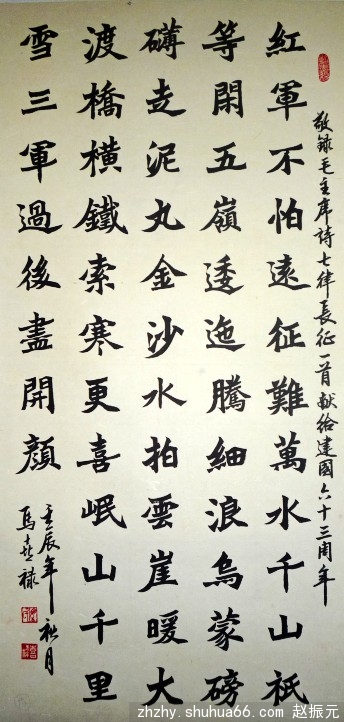 敬錄毛主席詩七律長征一首獻給建國六十三周年
紅軍不怕遠征難萬水千山祇
等閑五嶺逶迤騰細浪烏蒙磅
礴走泥丸金沙水拍雲崖暖大
渡橋橫鐵索寒更喜岷山千里
雪三軍過後盡開顏
壬辰年秋月
馬喜禄
zhzhy.shuhua66.com 赵振元